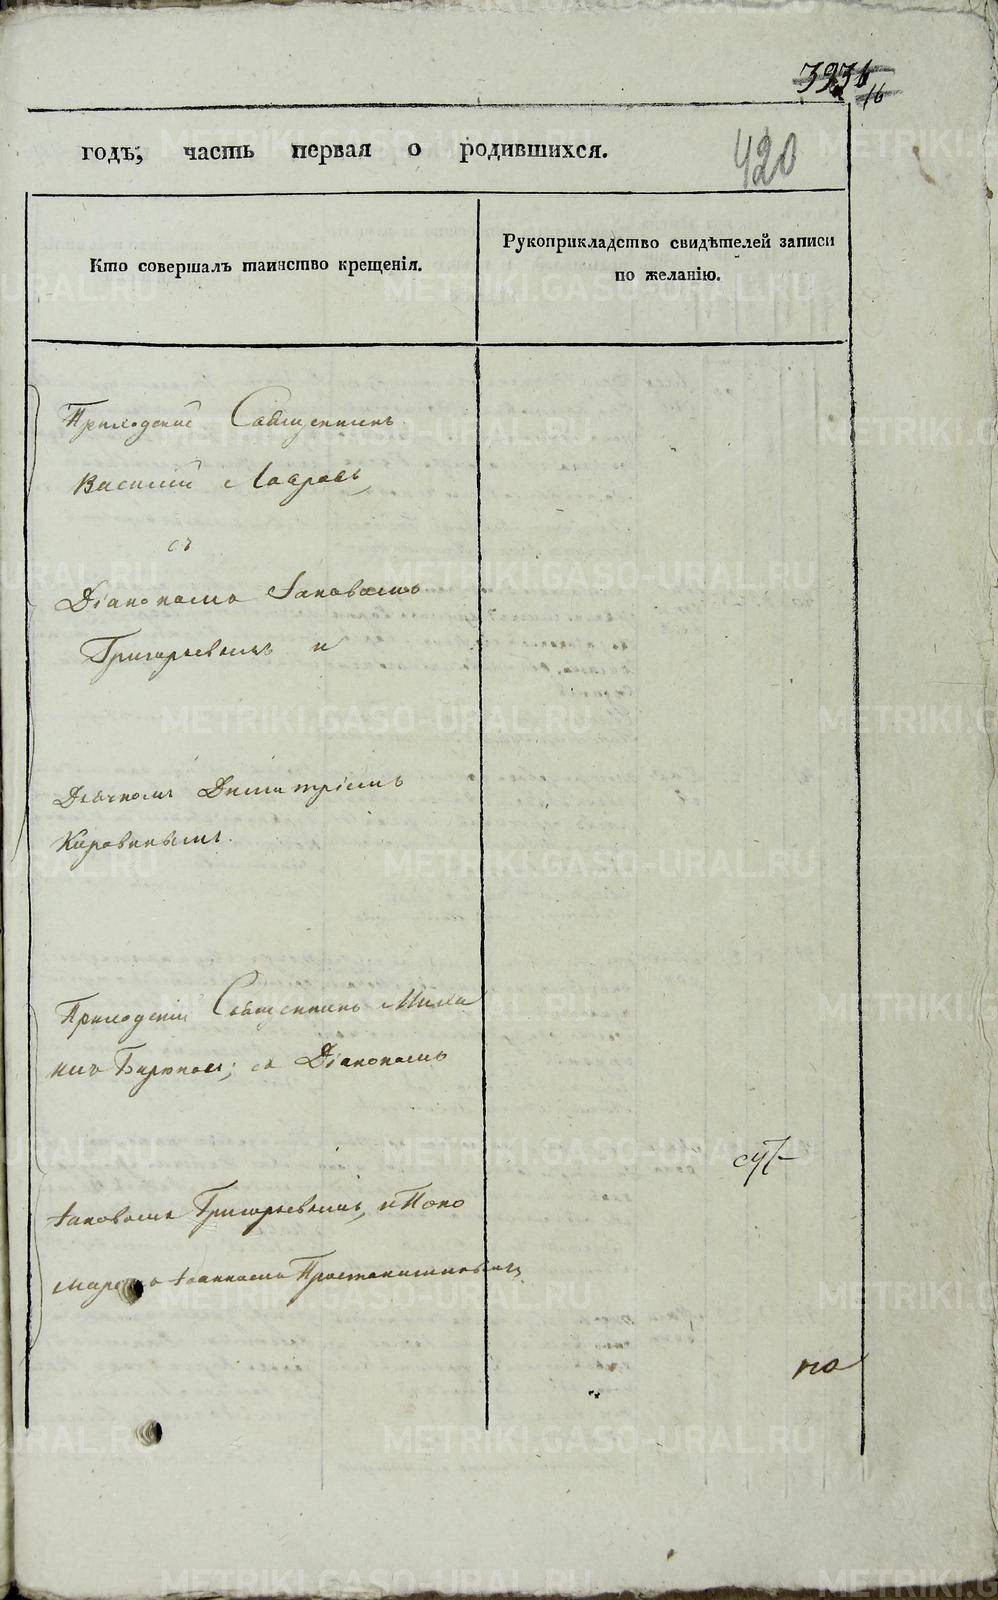 393
16
годъ, часть первая о родившихся.
420
Кто совершалъ таинство крещенія.
Рукоприкладство свидѣтелей записи
по желанію.
Приходскій Священникъ
Василий Лавровъ
съ
Діакономъ Іаковомъ
Григорьевымъ и
Дьячкомъ Димитріемъ
Коровинымъ.
Приходскій Священникъ Миха
илъ Бирюковъ; съ Діакономъ
Іаковомъ Григорьевымъ, и Поно
маремъ Іоанномъ
по
METRIKI.GASO-URAL.RU